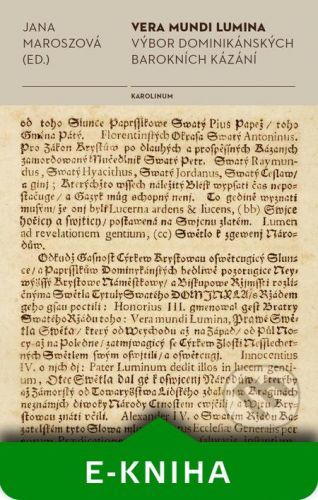 JANA
MAROSZOVÁ
(ED.)
VERA MUNDI LUMINA
VÝBOR DOMINIKÁNSKÝCH
BAROKNÍCH KÁZÁNÍ
KAROLINUM
od toho Slunce Paprsslkowe Swatý Pius Papež / toho
Gména Pátý. Florentinských Okrasa Swatý Antoninus.
Pro Zákon Krystůw po dlauhých a prospěssných Kázanjch
zamordowaný Mučedlnik Swatý Petr. Swatý Raymun-
dus, Swatý Hyacithus, Swatý Jordanus, Swatý Ceslaw/
a ginj; Kterýchžto wssech náležitý Blesk wypsati čas nepo-
stačuge / a Gazyk můg schopný nenj. To gedině wyznati
musým/ že onj byli Lucerna ardens & lucens, (bb) Swjce
hořicý a swjtjcý/ postawená na Swjcnu zlatém. Lumen
ad revelationem gentium, (cc) Swětlo k zgewenj Náro-
dům.
Odkudž Gasnost Cýrkew Krystowau oswětcugicý Slunce
/ a Paprsslkům Dominykánských bedliwě pozorugice Ney-
Krystowy Náměstkowy/ a Biskupowe Ržjmsstj rozli-
čnýma Swětla Tytuly Swatého DOMINYKA/ a Ržádem
geho gsau poctili: Honorius III. gmenowal gest Bratry
Swatého Ržádu toho: Vera mundi Lumina, Prawé Swětla
Swěta/ který od Weychodu až na Západ/ od Půl No-
cý až na Poledne/
Swětlem swým oswjtili/ a oswětcugj. Innocentius
IV. o njch dj: Pater Luminum dedit illos in lucem genti-
um, Otec Swětla dal ge k oswjcenj Národům/ kterýby
až Zámořský od Towaryšstwa Lidského zdalené/ w Kraginách
neznámých diwoký Národy Ctnostem cwjčili/ a Wjru Kry-
stowau znáti včili. Alexander IV. o Swatém Ržádu Ka-
zatelském tyto Slowa
E-KNIHA